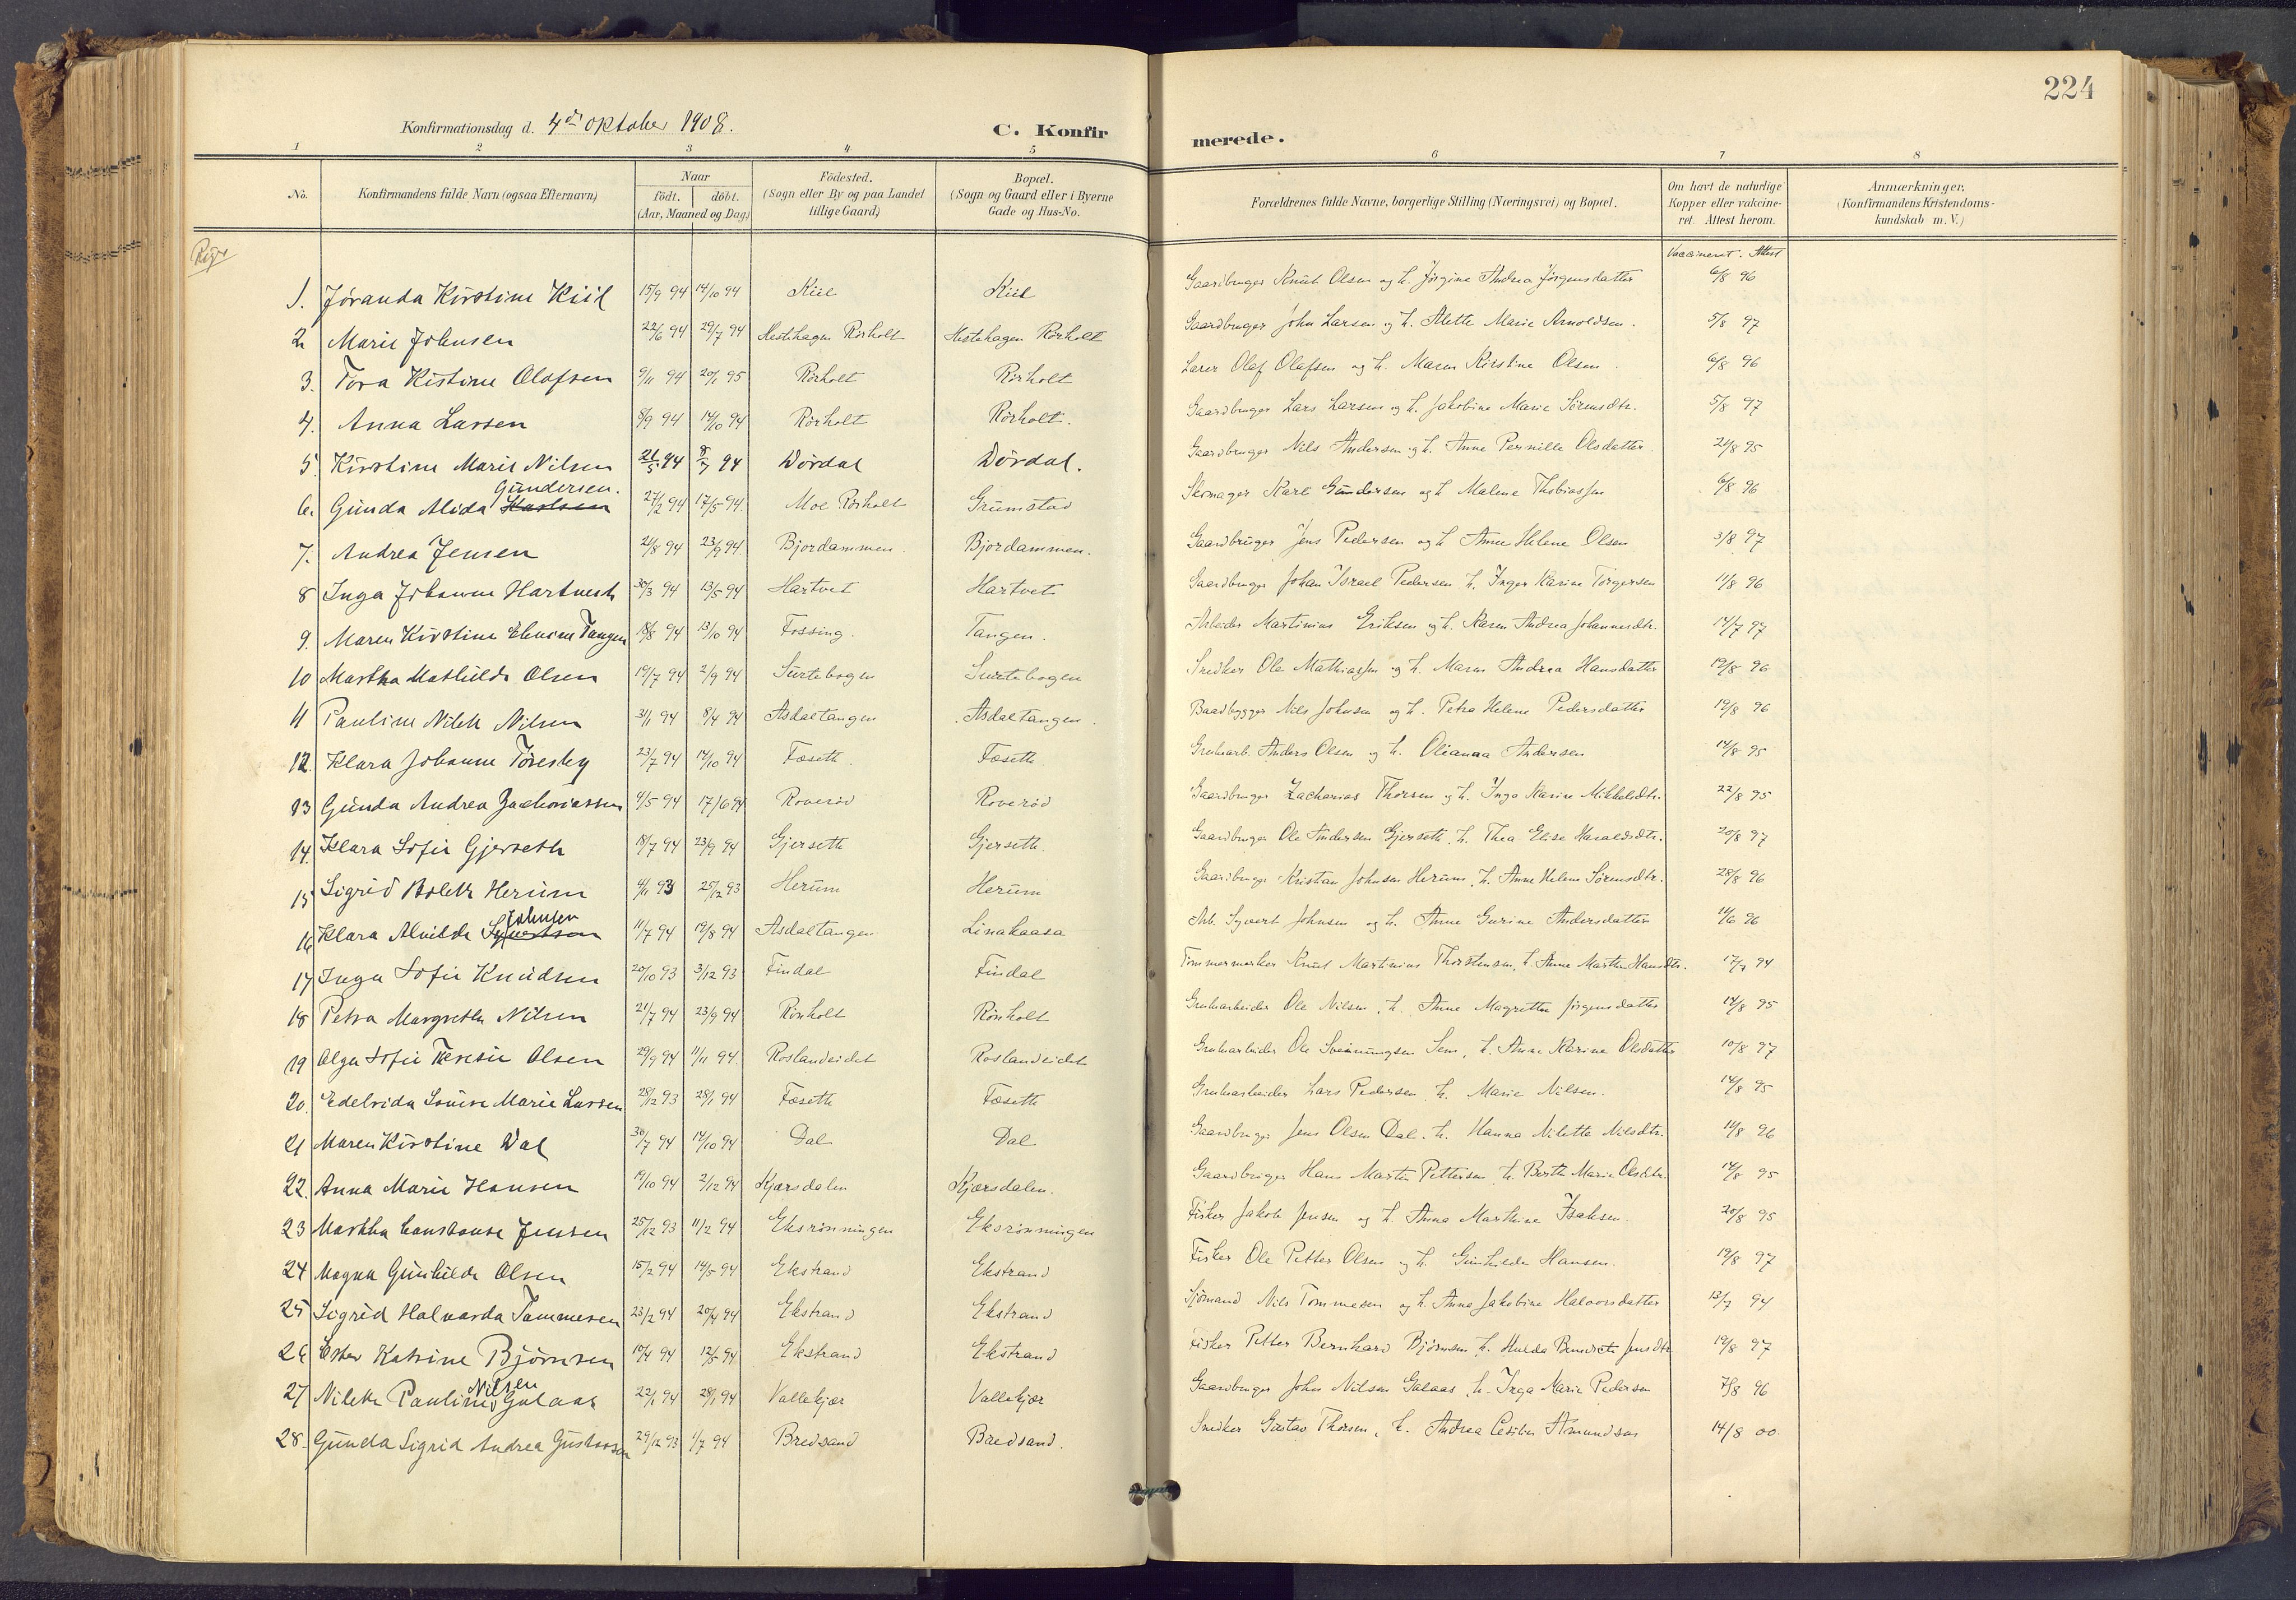 224
Konfirmationsdag d. 4de Oktober 1908.
C. Konfirmerede.
1 2 3 4 5 6 7 8
No. | Konfirmandens fulde Navn (ogsaa Efternavn) | Naar født. | døbt. (Aar, Maaned og Dag) | Fødested. (Sogn eller By og paa Landet tillige Gaard) | Bopæl. (Sogn og Gaard eller i Byerne Gade og Hus-No. | Forældrenes fulde Navne, borgerlige Stilling (Næringsvei) og Bopæl. | Om havt de naturlige Kopper eller vaccineret. Attest herom. | Anmærkninger. (Konfirmandens Kristendomskundskab m. V.)
Vaccineret. Attest
1. Joranda Kirstine Kiil 15/9 94 14/10 94 Kiil Kiil Gaardbruger Knut Olsen og h. Jørgine Andrea Jørgensdatter 6/8 96
2 Marie Johnsen 22/6 94 29/7 94 Hestehagen Rørholt Hestehagen Rørholt Gaardbruger John Larsen og h. Alette Marie Arnoldsen. 5/8 97
3. Tora Kistine Olafsen 9/11 94 20/1 95 Rørholt Rørholt Lærer Olaf Olafsen og h. Maren Kirstine Olsen. 6/8 96
4. Anna Larsen 8/9 94 14/10 94 Rørholt Rørholt. Gaardbruger Lars Larsen og h. Jakobine Marie Sørensdtr. 5/8 97
5 Kirstine Marie Nilsen 21/5 94 8/7 94 Dørdal Dørdal. Gaardbruger Nils Andersen og h. Anne Pernille Olsdatter 21/8 95
6. Gunda Alida Karlsen Gundersen. 27/2 94 17/5 94 Moe Rørholt Grumstad Skomager Karl Gundersen og h Malene Thobiassen 6/8 96
7. Andrea Jensen 21/8 94 23/9 94. Bjordammen. Bjordammen. Gaardbruger Jens Pedersen og h Anne Helene Olsen 3/8 97
8 Inga Johanne Hartvedt 30/3 94 13/5 94 Hartvet Hartvet Gaardbruger Johan Israel Pedersen h. Inger Karine Torgersen 11/8 96
9. Maren Kirstine Elevine Tangen 18/8 94 13/10 94 Fossing. Tangen. Arbeider Martinius Eriksen og h. Karen Andrea Johannesdtr. 14/7 97
10 Martha Mathilde Olsen 19/7 94 2/9 94 Surtebogen Surtebogen Snedker Ole Mathiassen og h. Maren Andrea Hansdatter 19/8 96
11 Pauline Nilette Nilsen 31/1 94 8/4 94 Asdaltangen Asdaltangen. Baadbygger Nils Johnsen og h. Petra Helene Pedersdatter 19/8 96
12. Klara Johanne Toresby 23/7 94 14/10 94 Foseth Foseth Grubearb. Anders Olsen og h. Olianna Andersen 14/8 95
13 Gunda Andrea Zachoriassen 4/5 94 17/6 94 Roverød Roverød Gaardbruger Zacharias Thorsen og h. Inga Karine Mikkelsdtr. 22/8 95
14. Klara Sofie Gjerseth 18/7 94 23/9 94 Gjerseth Gjerseth. Gaardbruger Ole Andersen Gjerseth h. Thea Elise Haraldsdtr. 20/8 97
15 Sigrid Bolette Herum 4/11 93 25/12 93 Herum Herum Gaardbruger Kristian Johnsen Herum, h. Anne Helene Sørensdtr. 28/8 96
16 Klara Alvilde Syvertsen Johnsen 11/7 94 19/8 94 Asdaltangen Linakaasa Arb. Syvert Johnsen og h. Anne Gurine Andersdatter 11/6 96
17 Inga Sofie Knudsen 20/10 93 3/12 93 Findal Findal Tømmermerker Knut Martinius Thorstensen, h. Anne Marthe Hansdtr. 17/7 94
18 Petra Margrethe Nilsen 21/7 94 23/9 94 Rønholt Rønholt Grubearbeider Ole Nilsen, h. Anne Magrethe Jørgensdatter 14/8 95
19 Olga Sofie Teresie Olsen 29/9 94 11/11 94. Roslandeidet Roslandeidet Grubearbeider Ole Sveinungsen Sem, h. Anne Karine Olsdatter 10/8 97
20. Edelvida Lovise Marie Larsen 28/12 93 28/1 94 Foseth Foseth Grubearbeider Lars Pedersen h. Marie Nilsen. 14/8 95
21 Maren Kirstine Dal 30/7 94 14/10 94 Dal Dal Gaardbruger Jens Olsen Dal. h. Hanna Nilette Nilsdtr. 11/8 96
22. Anna Marie Hansen 19/10 94 2/12 94 Kjærsdalen Kjærsdalen. Gaardbruger Hans Martin Pettersen h. Berthe Marie Olsdtr. 14/8 95
23 Martha Constanse Jensen 25/12 93 11/2 94 Eksrønningen Eksrønningen Fisker Jakob Jensen og h. Anna Marthine Isaksen. 20/8 95
24 Magna Gunhilde Olsen 15/2 94 14/5 94 Ekstrand Ekstrand Fisker Ole Petter Olsen og h. Gunhilde Hansen. 19/8 97
25 Sigrid Halvarda Tommesen 23/2 94 20/4 94 Ekstrand Ekstrand Sjømand Nils Tommesen og h. Anna Jakobine Halvorsdatter 13/7 94
26 Ester Katrine Bjørnsen 10/4 94 12/5 94 Ekstrand Ekstrand Fisker Petter Bernhard Bjørnsen h. Hulda Benedicte Jensdtr 19/8 97
27 Nilette Pauline Nilsen Galaas 22/1 94 28/1 94 Vallekjær Vallekjær Gaardbruger John Nilsen Galaas h. Inga Marie Pedersen 7/8 96
28. Gunda Sigrid Andrea Gustavsen 29/12 93 1/7 94 Bredsand Bredsand. Snedker Gustav Thorsen, h. Andrea Amundsen 14/8 00.